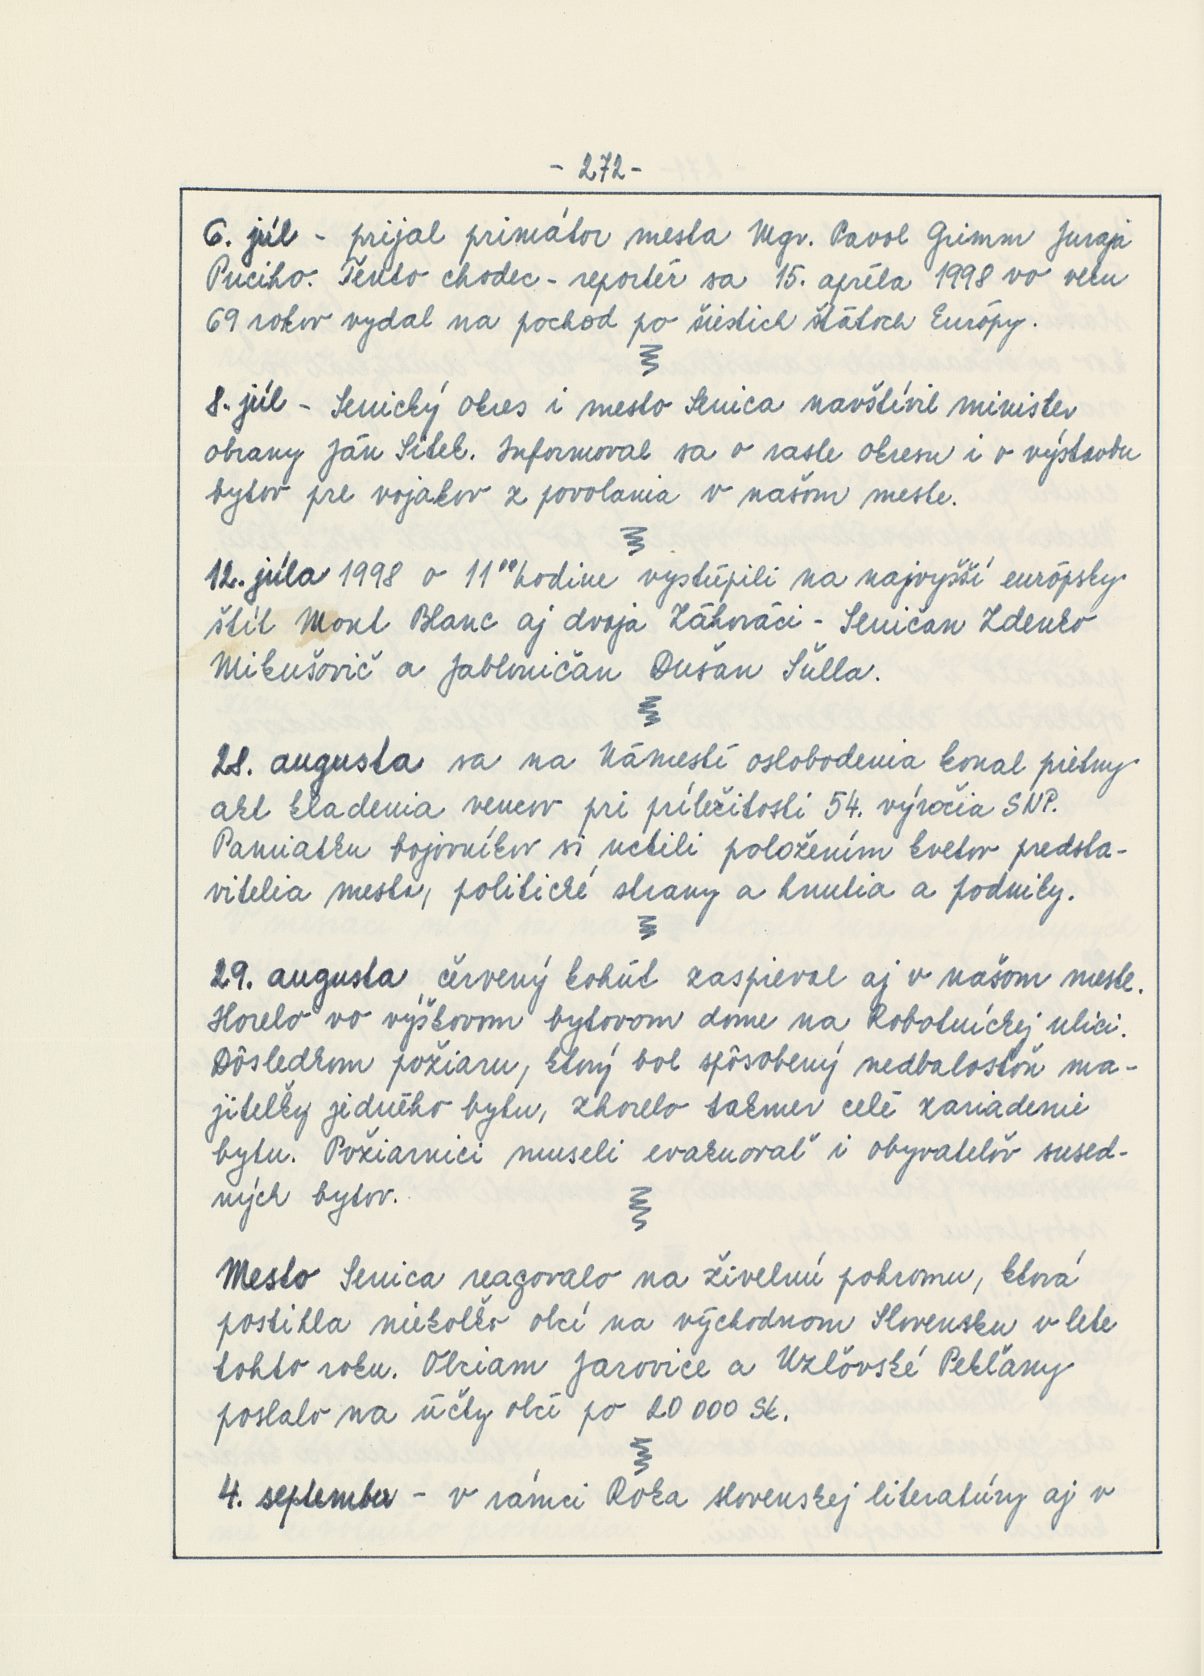 - 272 -
6. júl - prijal primátor mesta Mgr. Pavol Grimm Juraja
Puciho. Tento chodec - reportér sa 15. apríla 1998 vo veku
69 rokov vydal na pochod po šiestich štátoch Európy.
8. júl - Senický okres i mesto Senica navštívil minister
obrany Ján Sitek. Informoval sa o raste okresu i o výstavbu
bytov pre vojakov z povolania v našom meste.
12. júla 1998 o 11⁰⁰ hodine vystúpili na najvyšší európsky
štít Mont Blanc aj dvaja Záhoráci - Seničan Zdenko
Mikušovič a Jabloničan Dušan Šulla.
28. augusta sa na Námestí oslobodenia konal pietny
akt kladenia vencov pri príležitosti 54. výročia SNP.
Pamiatku bojovníkov si uctili položením kvetov predsta-
vitelia mesta, politické strany a hnutia a podniky.
29. augusta červený kohút zaspieval aj v našom meste.
Horelo vo výškovom bytovom dome na Robotníckej ulici.
Dôsledkom požiaru, ktorý bol spôsobený nedbalosťou ma-
jiteľky jedného bytu, zhorelo takmer celé zariadenie
bytu. Požiarnici museli evakuovať i obyvateľov sused-
ných bytov.
Mesto Senica reagovalo na živelnú pohromu, ktorá
postihla niekoľko obcí na východnom Slovensku v lete
tohto roku. Obciam Jarovice a Uzlovské Pekľany
poslalo na účty obcí po 20 000 Sk.
4. september - v rámci Roka slovenskej literatúry aj v